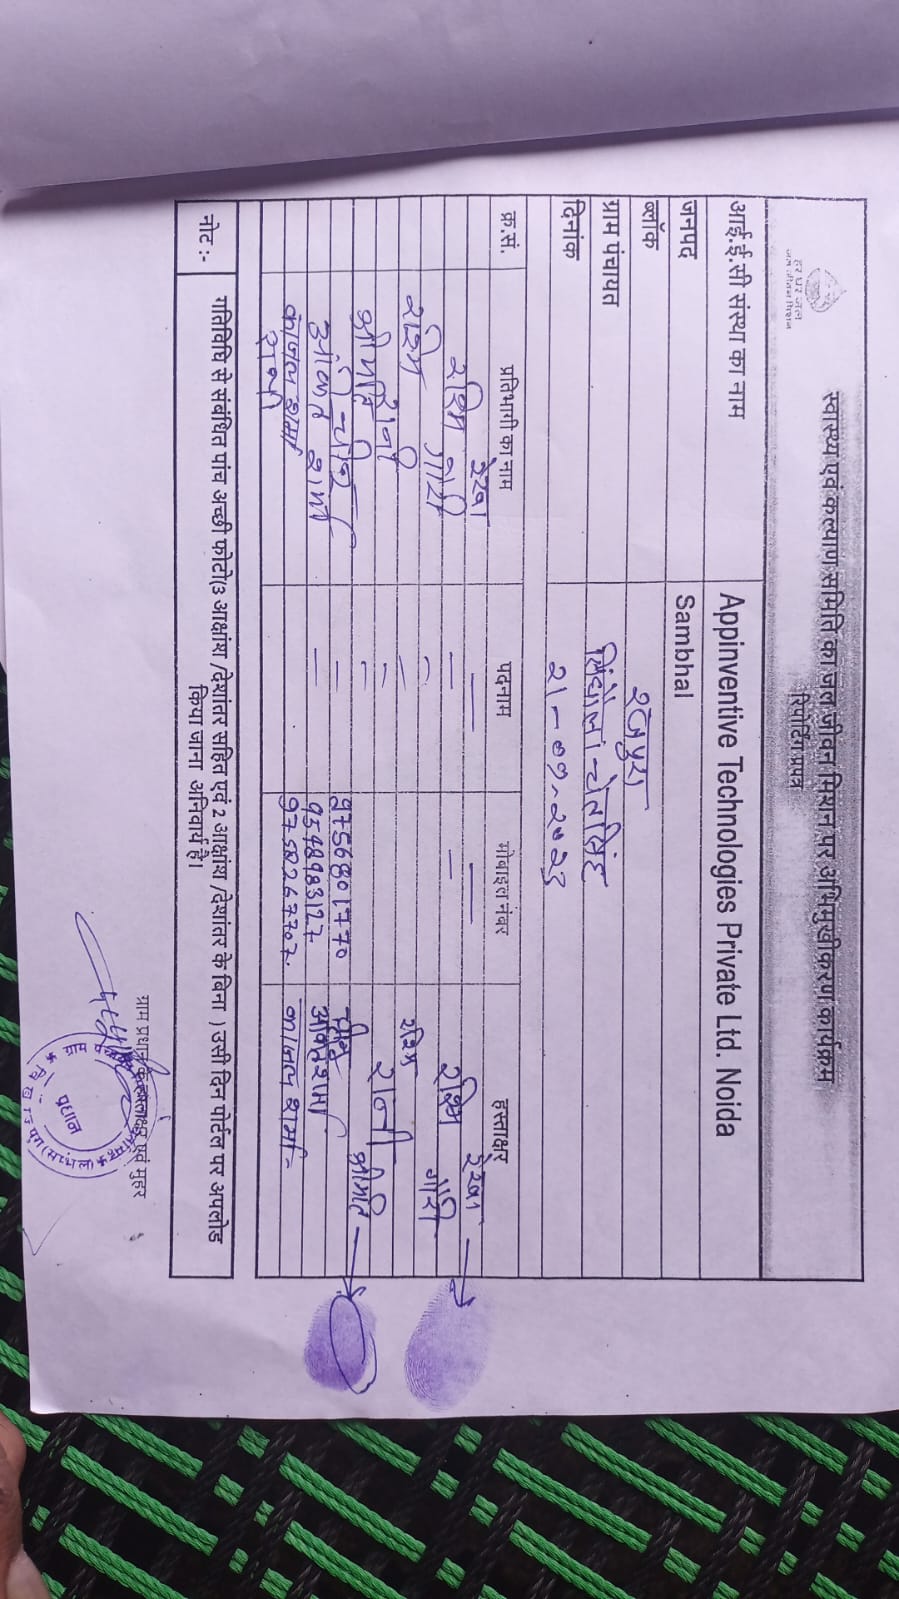 हर घर जल
जल जीवन मिशन
स्वास्थ्य एवं कल्याण समिति का जल जीवन मिशन पर अभिमुखीकरण कार्यक्रम
रिपोर्टिंग प्रपत्र
आई.ई.सी संस्था का नाम Appinventive Technologies Private Ltd. Noida
जनपद Sambhal
ब्लॉक रजपुरा
ग्राम पंचायत सिंघौला चेतसिंह
दिनांक 21-09-2023
क्र.सं. प्रतिभागी का नाम पदनाम मोबाइल नंबर हस्ताक्षर
रेखा — — रेखा
रश्मि — — रश्मि
रश्मि रश्मि
श्रीमति श्रीमति
9756801770
9548983127
काजल शर्मा 9758267707. काजल शर्मा
नोट :- गतिविधि से संबंधित पांच अच्छी फोटो(3 आक्षांश /देशांतर सहित एवं 2 आक्षांश /देशांतर के बिना ) उसी दिन पोर्टल पर अपलोड
किया जाना अनिवार्य है।
ग्राम प्रधान के हस्ताक्षर एवं मुहर
प्रधान